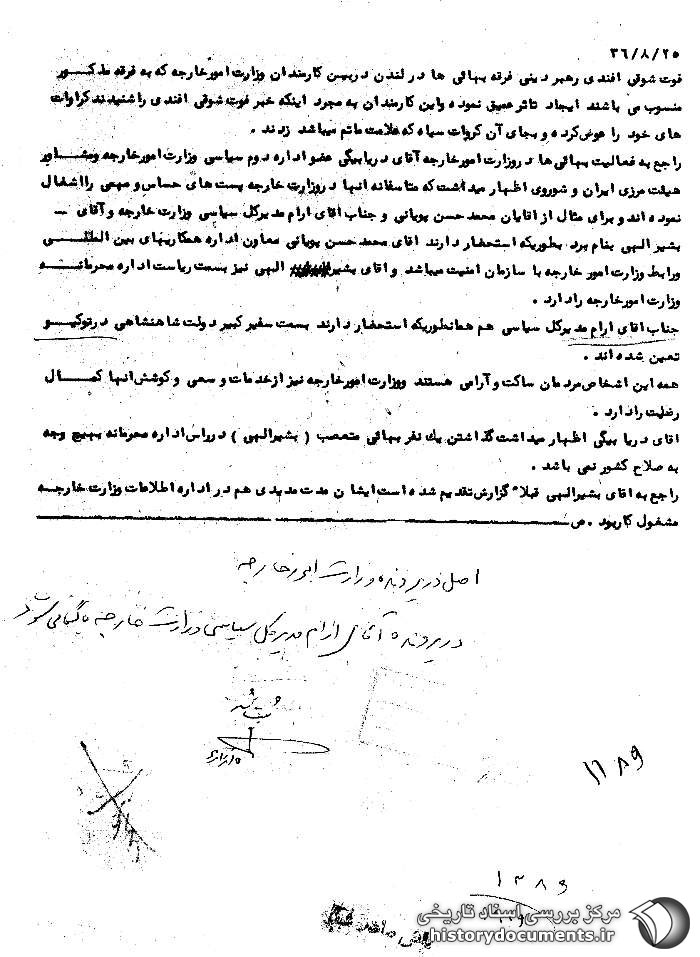 ۳۶/۸/۲۵
فوت شوقی افندی رهبر دینی فرقه بهائی ها در لندن در بین کارمندان وزارت امور خارجه که به فرقه مذکور
منسوب می باشند ایجاد تاثر عمیق نموده و این کارمندان به مجرد اینکه خبر فوت شوقی افندی را شنیدند کراوات
های خود را عوض کرده و بجای آن کروات سیاه که علامت ماتم میباشد زدند .
راجع به فعالیت بهائی ها در وزارت امور خارجه آقای دریابیگی عضو اداره دوم سیاسی وزارت امور خارجه و مشاور
هیئت مرزی ایران و شوروی اظهار میداشت که متاسفانه آنها در وزارت خارجه پست های حساس و مهمی را اشغال
نموده اند و برای مثال از آقایان محمد حسن پویانی و جناب آقای ارام مدیرکل سیاسی وزارت خارجه و آقای –
بشیر الهی بنام برد بطوریکه استحضار دارند آقای محمد حسن پویانی معاون اداره همکاریهای بین المللی
و رابط وزارت امور خارجه با سازمان امنیت میباشد و آقای بشیر الهی نیز بسمت ریاست اداره محرمانه
وزارت امور خارجه را دارد .
جناب آقای ارام مدیرکل سیاسی هم همانطوریکه استحضار دارند بسمت سفیر کبیر دولت شاهنشاهی در توکیو
تعیین شده اند .
همه این اشخاص مردمان ساکت و آرامی هستند و وزارت امور خارجه نیز از خدمات و سعی و کوشش آنها کمال
رضایت را دارد .
آقای دریا بیگی اظهار میداشت گذاشتن یک نفر بهائی متعصب ( بشیرالهی ) در راس اداره محرمانه بهیچ وجه
به صلاح کشور نمی باشد .
راجع به آقای بشیرالهی قبلاً گزارش تقدیم شده است ایشان مدت مدیدی هم در اداره اطلاعات وزارت خارجه
مشغول کار بود . ص
اصل در پرونده وزارت امور خارجه
در پرونده آقای ارام مدیرکل سیاسی وزارت خارجه بایگانی شود
۱۱۸۹
۱۳۸۹
مرکز بررسی اسناد تاریخی
historydocuments.ir